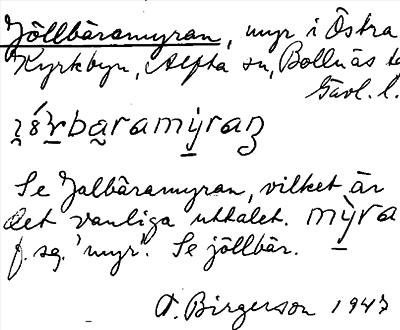 Jöllbäramyran, myr i Östra
Kyrkbyn, Alfta sn, Bollnäs
Gävl. l.
Se Jalbäramyran, vilket är
det vanliga uttalet. mỳra
f. sg. 'myr'. Se jöllbär.
Birgerson 1947